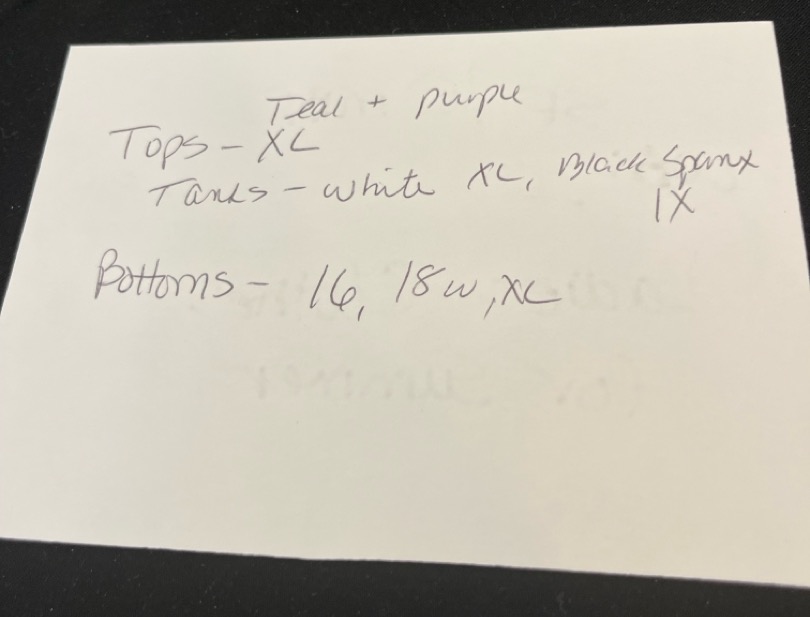 Teal + purple
Tops - XL
Tanks - white XL, Black Spanx
1X
Bottoms - 16, 18w, XL